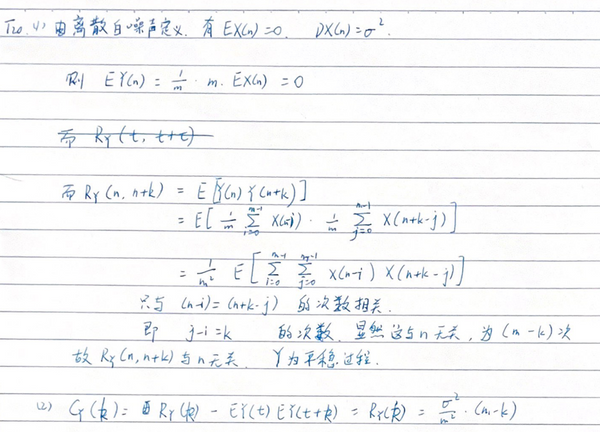 T20. (1) 由离散白噪声定义, 有 EX(n)=0. DX(n)=σ².
则 EY(n) = 1/m · m · EX(n) = 0
而 R_Y(t, t+τ)
而 R_Y(n, n+k) = E[Y(n)Y(n+k)]
= E[1/m ∑_{i=0}^{m-1} X(n-i) · 1/m ∑_{j=0}^{m-1} X(n+k-j)]
= 1/m² E[∑_{i=0}^{m-1} ∑_{j=0}^{m-1} X(n-i) X(n+k-j)]
只与 (n-i)=(n+k-j) 的次数相关.
即 j-i=k 的次数, 显然这与n无关, 为(m-k)次
故 R_Y(n,n+k)与n无关. Y为平稳过程.
(2) C_Y(k)= R_Y(k) - EY(t)EY(t+k) = R_Y(k) = σ²/m² · (m-k)